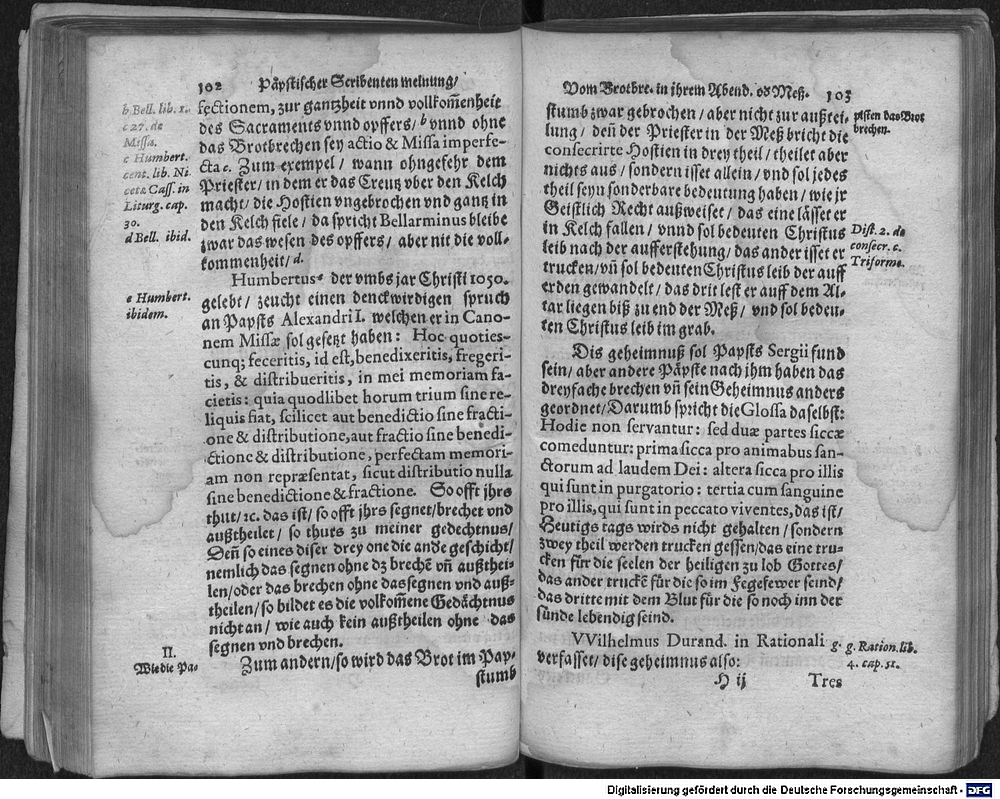 102 Päpstischer Scribenten meinung/
b Bell. lib. 1.
c 27. de
Missa.
c Humbert.
cont. lib. Ni
cetæ Cass. in
Liturg. cap.
30.
d Bell. ibid.
e Humbert.
ibidem.
II.
Wie die Pa-
fectionem, zur gantzheit vnnd vollkom̃enheit
des Sacraments vnnd opffers/ b vnnd ohne
das Brotbrechen sey actio & Missa imperfe-
cta c. Zum exempel/ wann ohngefehr dem
Priester/ in dem er das Creutz vber den Kelch
macht/ die Hostien vngebrochen vnd gantz in
den Kelch fiele/ da spricht Bellarminus bleibe
zwar das wesen des opffers/ aber nit die voll-
kommenheit/ d.
Humbertus e der vmbs jar Christi 1050.
gelebt/ zeucht einen denckwirdigen spruch
an Papsts Alexandri I. welchen er in Cano-
nem Missæ sol gesetzt haben: Hoc quoties-
cunq; feceritis, id est, benedixeritis, fregeri-
tis, & distribueritis, in mei memoriam fa-
cietis: quia quodlibet horum trium sine re-
liquis fiat, scilicet aut benedictio sine fracti-
one & distributione, aut fractio sine benedi-
ctione & distributione, perfectam memori-
am non repræsentat, sicut distributio nulla
sine benedictione & fractione. So offt jhrs
thut/ ꝛc. das ist/ so offt jhrs segnet/ brechet vnd
außtheilet/ so thurs zu meiner gedechtnus/
Deñ so eines diser drey one die ande geschicht/
nemlich das segnen ohne dz brechẽ vñ außthei-
len/ oder das brechen ohne das segnen vnd auß-
theilen/ so bildet es die volkom̃ene Gedächtnus
nicht an/ wie auch kein außtheilen ohne das
segnen vnd brechen.
Zum andern/ so wird das Brot im Pap-
stumb
Vom Brotbre. in ihrem Abend. od Meß. 103
stumb zwar gebrochen/ aber nicht zur außtei-
lung/ deñ der Priester in der Meß bricht die
consecrirte Hostien in drey theil/ theilet aber
nichts aus/ sondern isset allein/ vnd sol jedes
theil seyn sonderbare bedeutung haben/ wie jr
Geistlich Recht außweiset/ das eine lässet er
in Kelch fallen/ vnnd sol bedeuten Christus
leib nach der aufferstehung/ das ander isset er
trucken/ vñ sol bedeuten Christus leib der auff
erden gewandelt/ das drit lest er auff dem Al-
tar liegen biß zu end der Meß/ vnd sol bedeu-
ten Christus leib im grab.
Dis geheimnuß sol Papsts Sergii fund
sein/ aber andere Päpste nach ihm haben das
dreyfache brechen vñ sein Geheimnus anders
geordnet/ Darumb spricht die Glossa daselbst:
Hodie non servantur: sed duæ partes siccæ
comeduntur: prima sicca pro animabus san-
ctorum ad laudem Dei: altera sicca pro illis
qui sunt in purgatorio: tertia cum sanguine
pro illis, qui sunt in peccato viventes, das ist/
Heutigs tags wirds nicht gehalten/ sondern
zwey theil werden trucken gessen/ das eine tru-
cken für die seelen der heiligen zu lob Gottes/
das ander truckẽ für die so im Fegefewer seind/
das dritte mit dem Blut für die so noch inn der
sünde lebendig seind.
VVilhelmus Durand. in Rationali g.
verfasset/ dise geheimnus also:
H ij Tres
pisten das Brot
brechen.
Dist. 2. de
consecr. c.
Triforme.
g. Ration. lib.
4. cap. 51.
Digitalisierung gefördert durch die Deutsche Forschungsgemeinschaft - DFG